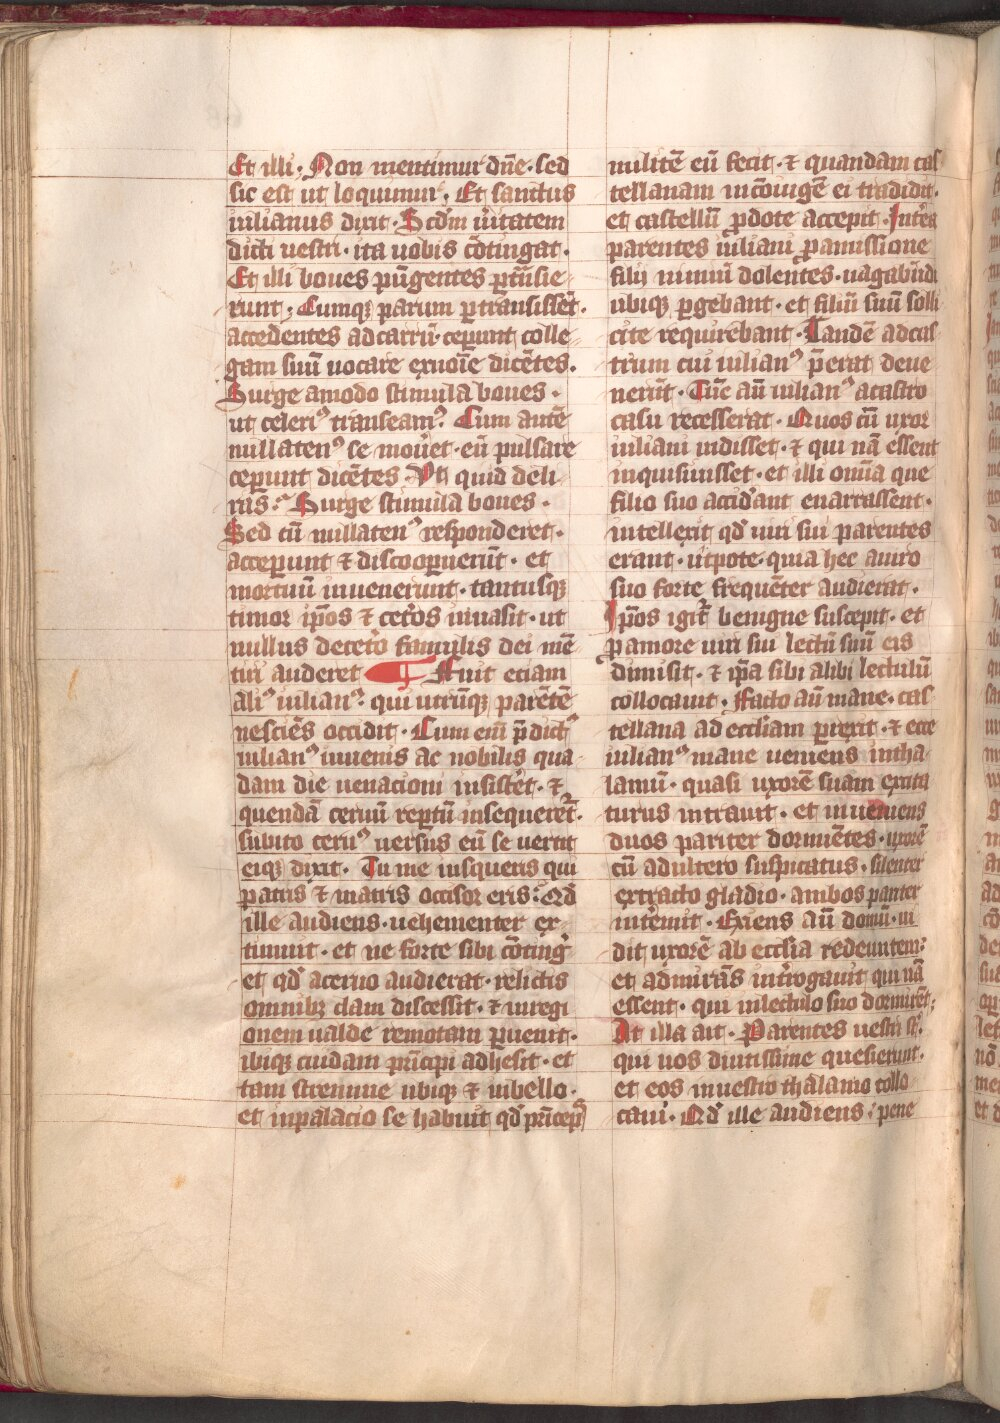 Et illi. Non mentimur dn̄e. sed
sic est ut loquimur. Et sanctus
iulianus dixit. Scd̄m u̅itatem
dicti uestri. ita uobis cōtingat.
Et illi boues pūgentes ꝑtn̄sie
runt. Cumqꝫ parum ꝑtransissēt.
accedentes ad carrū. ceperunt colle
gam suū uocare ex noīe dicētes.
Surge amodo stimula boues.
ut celeriꝰ transeamꝰ. Cum autē
nullatenꝰ se mouēet. eū pulsare
ceperunt dicētes. Vt quid deli
ras? Surge stimula boues.
Sed cū nullatenꝰ responderet.
accesserunt ⁊ discooperuerūt. et
mortuū inuenerunt. tantusqꝫ
timor ip̄os ⁊ cet̄os inuasit. ut
nullus decet̄o famulis dei mē
tiri auderet Fuit eciam
aliꝰ iulianꝰ. qui utrūqꝫ parētē
nesciēs occidit. Cum enī p̄dictꝰ
iulianꝰ iuuenis ac nobilis qua
dam die uenacioni insist̄et. ⁊
quendā ceruū rep̄tū insequeret̄.
subito ceruꝰ uersus eū se uertit
eiqꝫ dixit. Tu me insqueris qui
patris ⁊ matris occisor eris. Qd̄
ille audiens. uehementer ex
timuit. et ne forte sibi cōtinḡ
et qd̄ a ceruo audierat. relictis
omnibꝫ clam discessit. ⁊ in regi
onem ualde remotam ꝑuenit.
ibiqꝫ cuidam prīcipi adhesit. et
tam strennue ubiqꝫ ⁊ in bello.
et in palacio se habuit qd̄ prīceps
militē eū fecit. ⁊ quandam cas
tellanam in cōiugē ei tradidit.
et castellū ꝓ dote accepit. Int̄ea
parentes iuliani ꝓ amissione
filij nimiū dolentes. uagabūdi
ubiqꝫ ꝑgebant. et filiū suū solli
cite requirebant. Tandē ad cas
trum cui iulianꝰ p̄erat deue
nerūt. Tūc aū iulianꝰ a castro
casu recesserat. Quos cū uxor
iuliani uidisset. ⁊ qui nā essent
inquisiuisset. et illi omīa que
filio suo accid̄ant enarrassent.
intellexit qd̄ uiri sui parentes
erant. utpote. quia hec a uiro
suo forte frequēter audierat.
Ip̄os igit̄ benigne suscepit. et
ꝓ amore uiri sui lectū suū eis
dimisit. ⁊ ip̄a sibi alibi lectulū
collocauit. Facto aū mane. cas
tellana ad eccl̄iam ꝑrexit. ⁊ ecce
iulianꝰ mane ueniens in tha
lamū. quasi uxorē suam excita
turus intrauit. et inueniens
duos pariter dormiētes. uxorē
cū adultero suspicatus. silenter
extracto gladio. ambos pariter
int̄emit. Exiens aū domū. ui
dit uxorē ab eccl̄sia redeuntem.
et admirās int̄rogauit qui nā
essent. qui in lectulo suo dormirēt.
At illa ait. Parentes uestri st̄.
qui uos diutissime quesierunt.
et eos in uestro thalamo collo
caui. Qd̄ ille audiens. pene